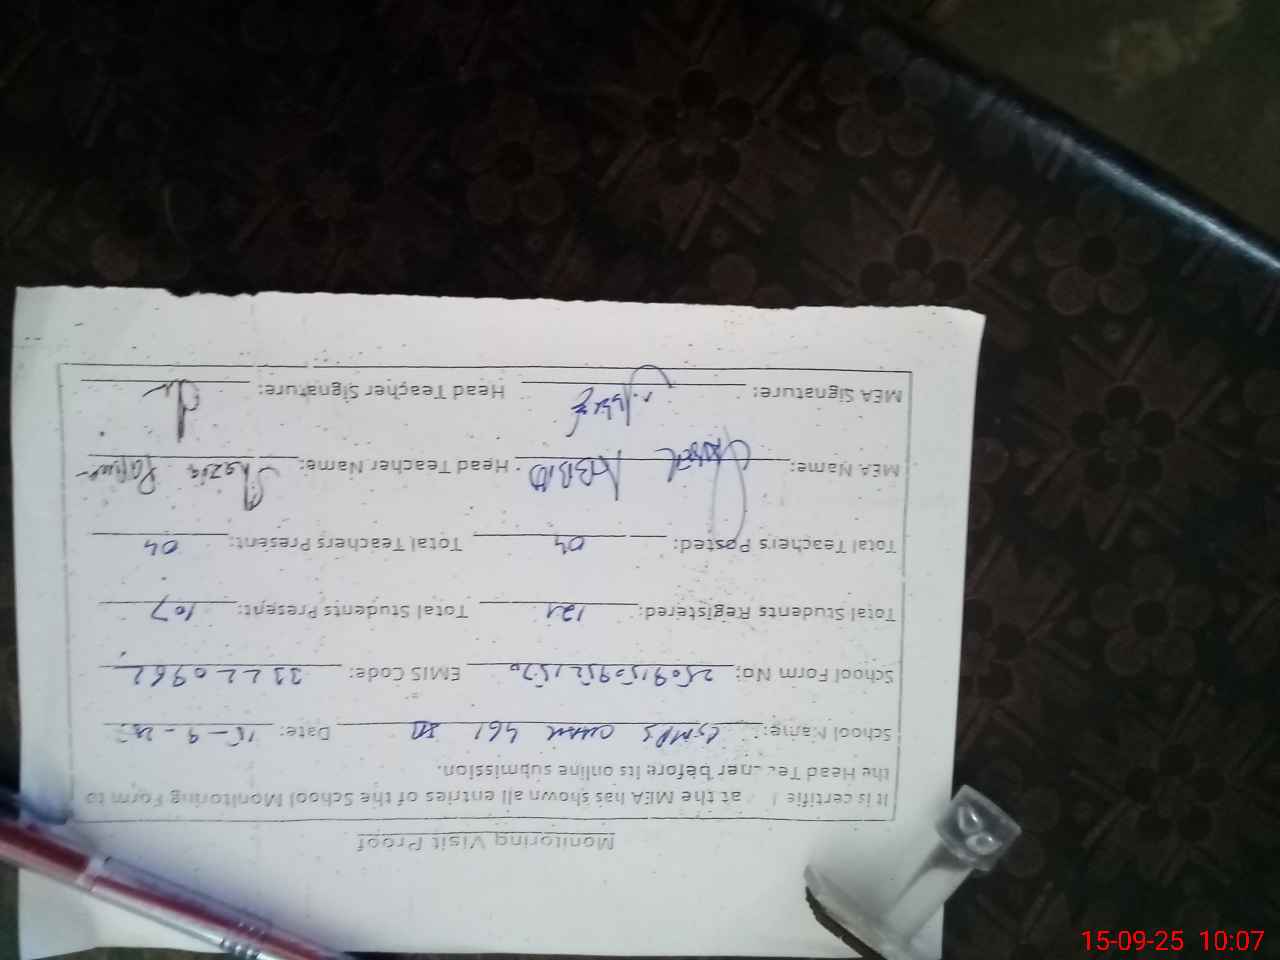 Monitoring Visit Proof
It is certifie at the MEA has shown all entries of the School Monitoring Form to
the Head Teacher before its online submission.
School Name: GMPS 461 Date: 15-9-25
School Form No: EMIS Code: 33220962
Total Students Registered: 121 Total Students Present: 107
Total Teachers Posted: 04 Total Teachers Present: 04
MEA Name: Head Teacher Name: Shazia
MEA Signature: Head Teacher Signature:
15-09-25 10:07